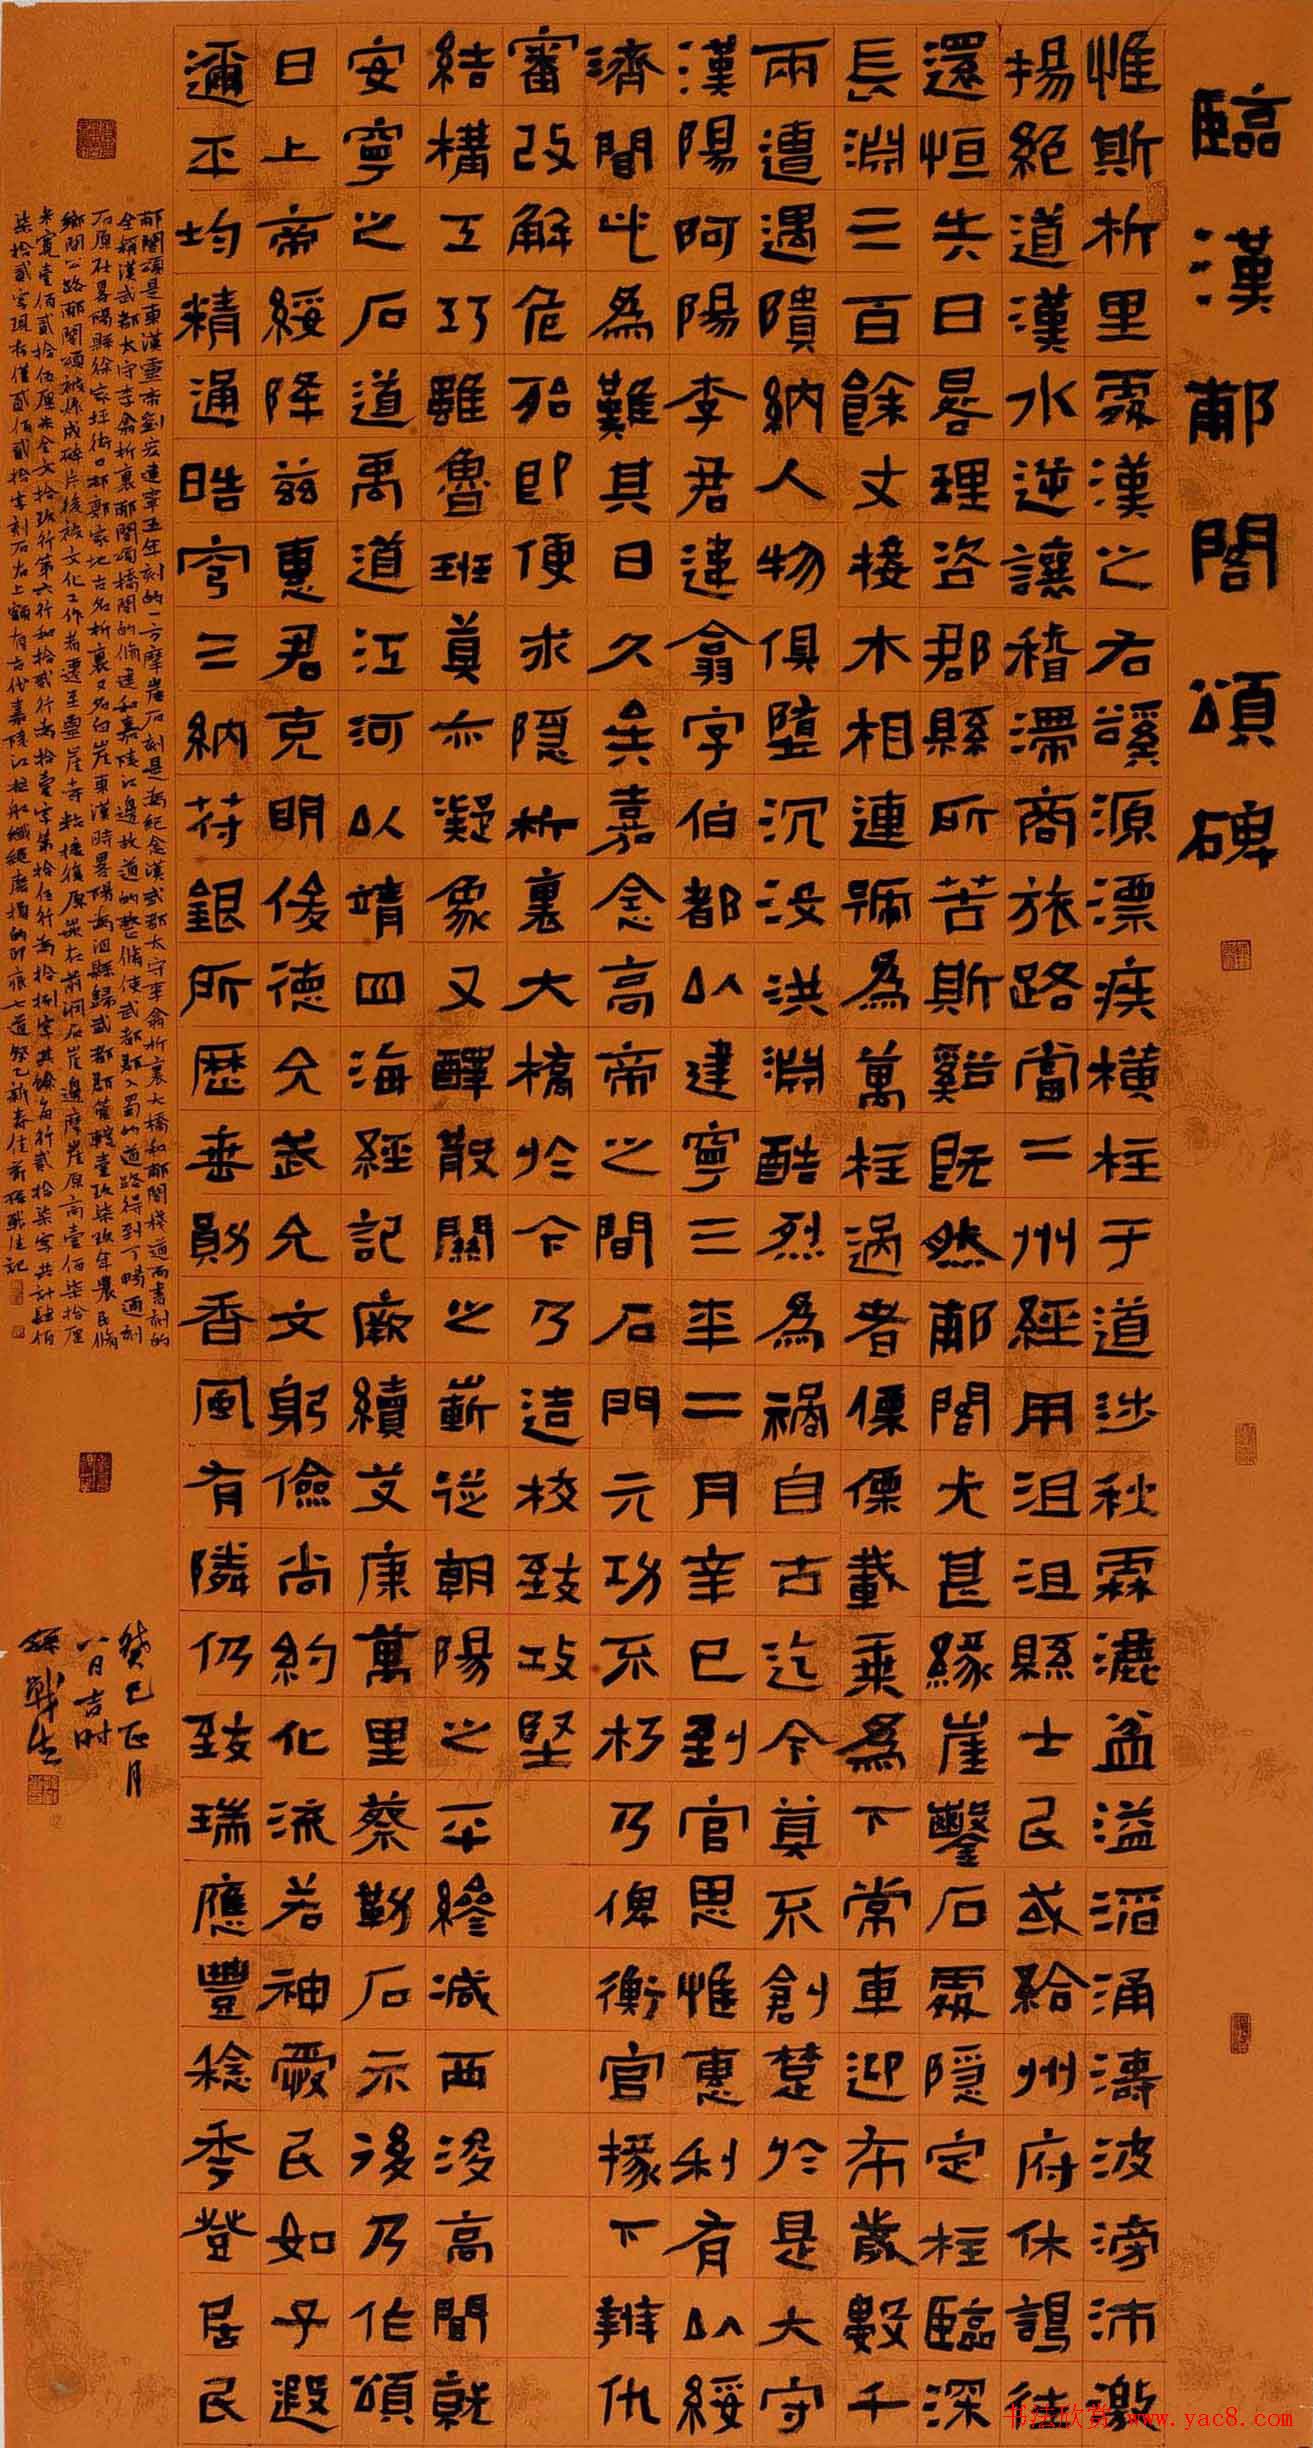 臨漢郙閣頌碑
惟斯析里處漢之右谿源漂疾橫柱于道涉秋霖漉盆溢滔涌濤波滂沛激
揚絕道漢水逆讓稽滯商旅路當二州經用沮沮縣士民或給州府休謁徃
還恒失日晷理咨郡縣所苦斯谿既然郙閣尤甚緣崖鑿石處隱定柱臨深
長淵三百餘丈接木相連號為萬柱過者慄慄載乘為下常車迎布歲數千
兩遭遇隤納人物俱墮沉沒洪淵酷烈為禍自古迄今莫不創楚於是大守
漢陽阿陽李君建翕字伯都以建寧三年二月辛巳到官思惟惠利有以綏
濟聞此為難其日久矣嘉念高帝之間石門元功不朽乃俾衡官掾下辨仇
審改解危殆即便求隱析裏大橋於今乃造校致攻堅
結構工巧雖魯班莫亦凝象又醳散關之嶄從朝陽之平減西浚高閣就
安寧之石道禹道江河以靖四海經記厥續艾康萬里蔡勒石示後乃作頌
日上帝綏降茲惠君克明俊德允武允文躬儉尚約化流若神愛民如子遐
邇平均精通晧穹三納苻銀所歷垂勛香風有隣仍致瑞應豐稔季登居民
郙閣頌是東漢靈帝劉宏建寧五年刻的一方摩崖石刻是為紀念漢武都太守李翕析裏大橋和郙閣棧道而書刻的
全稱漢武都太守李翕析裏郙閣頌橋閣的脩建和嘉陵江邊故道的整脩使武都郡入蜀的道路得到了暢通刻
石原在畧陽縣徐家坪街口鄭家地古名析裏又名白崖東漢時畧陽為沮縣歸武都郡管轄壹玖柒玖年農民脩
鄉間公路郙閣頌被炸成碎片後被文化工作者遷至靈崖寺粘接復原嵌在前洞石崖邊摩崖原高壹佰柒拾厘
米寬壹佰貳拾伍厘米全文拾玖行第六行和拾貳行為拾壹字第拾伍行為拾捌字其餘每行貳拾柒字共計肆佰
柒拾貳字現存僅貳佰貳拾字刻石右上額有古代嘉陵江拉船纖繩磨損的印痕七道癸巳新春佳節孫戰生記
癸巳正月
八日吉时
孫戰生
书法欣赏 www.yac8.com